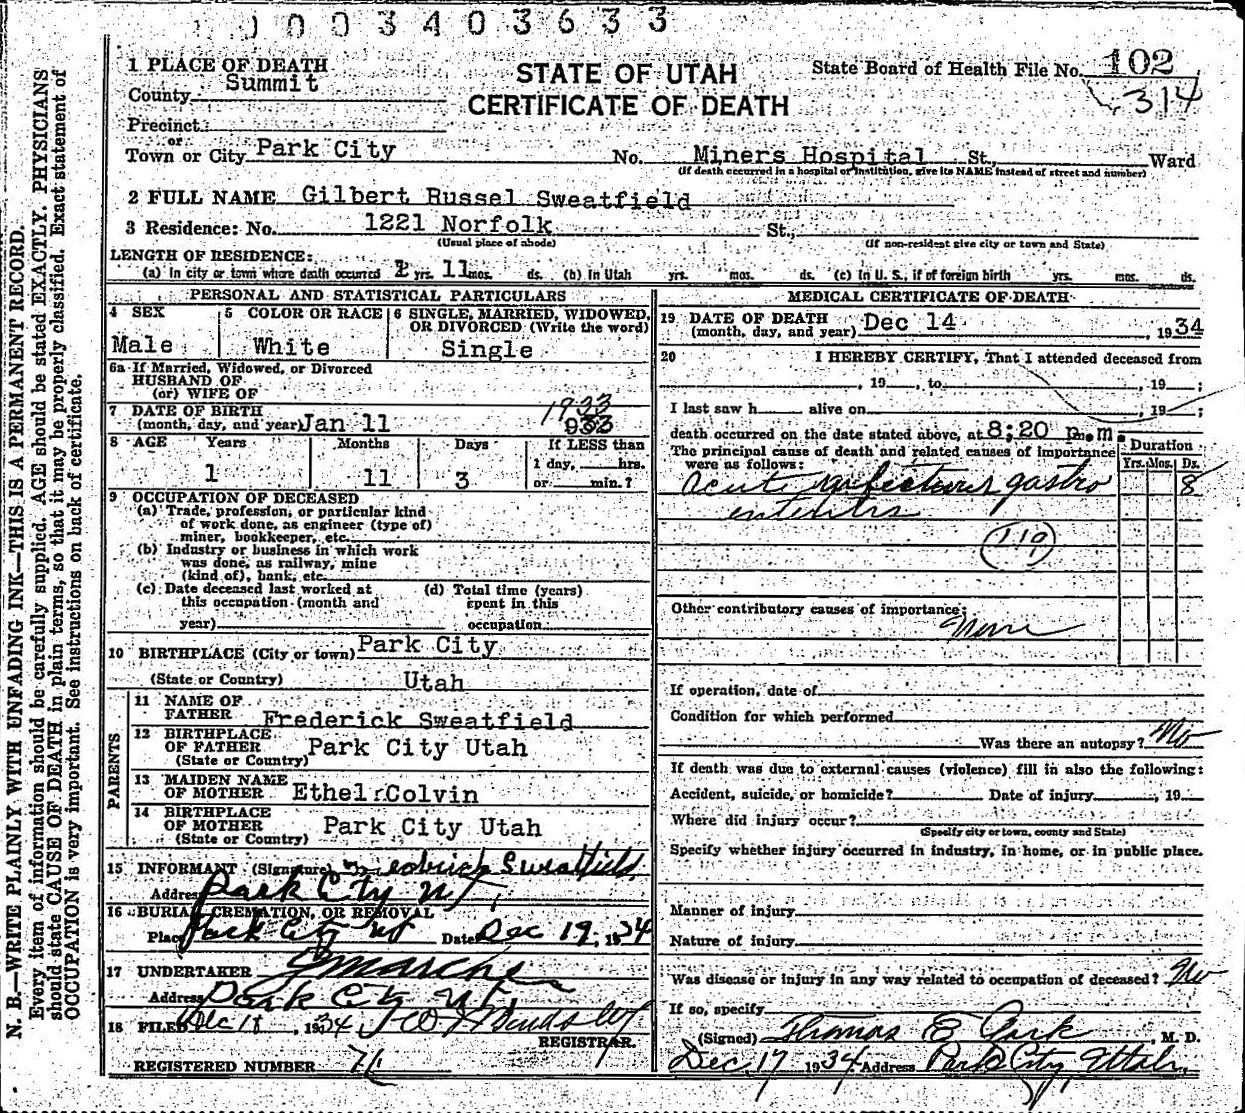 1003403633
1 PLACE OF DEATH
County Summit
STATE OF UTAH
CERTIFICATE OF DEATH
State Board of Health File No. 102
314
Precinct
or
Town or City Park City No. Miners Hospital St., Ward
(If death occurred in a hospital or institution, give its NAME instead of street and number)
2 FULL NAME Gilbert Russel Sweatfield
3 Residence: No. 1221 Norfolk St.,
(Usual place of abode) (If non-resident give city or town and State)
LENGTH OF RESIDENCE:
(a) In city or town where death occurred yrs. 11 mos. ds. (b) In Utah yrs. mos. ds. (c) In U. S., if of foreign birth yrs. mos. ds.
PERSONAL AND STATISTICAL PARTICULARS
4 SEX
Male
5 COLOR OR RACE
White
6 SINGLE, MARRIED, WIDOWED,
OR DIVORCED (Write the word)
Single
6a If Married, Widowed, or Divorced
HUSBAND OF
(or) WIFE OF
7 DATE OF BIRTH
(month, day, and year) Jan 11 1933
8 AGE Years Months Days If LESS than
1 day, hrs.
1 11 3 or min.?
9 OCCUPATION OF DECEASED
(a) Trade, profession, or particular kind
of work done, as engineer (type of)
miner, bookkeeper, etc.
(b) Industry or business in which work
was done, as railway, mine
(kind of), bank, etc.
(c) Date deceased last worked at
this occupation (month and
year)
(d) Total time (years)
spent in this
occupation
10 BIRTHPLACE (City or town) Park City
(State or Country) Utah
PARENTS
11 NAME OF
FATHER Frederick Sweatfield
12 BIRTHPLACE
OF FATHER Park City Utah
(State or Country)
13 MAIDEN NAME
OF MOTHER Ethel Colvin
14 BIRTHPLACE
OF MOTHER Park City Utah
(State or Country)
15 INFORMANT (Signature) Fredrick Sweatfield
Address Park City Ut,
16 BURIAL, CREMATION, OR REMOVAL
Place Park City Ut Date Dec 19, 1934
17 UNDERTAKER
Address Park City Ut,
18 FILED Dec 18, 1934
REGISTRAR.
REGISTERED NUMBER 71
MEDICAL CERTIFICATE OF DEATH
19 DATE OF DEATH
(month, day, and year) Dec 14 1934
20 I HEREBY CERTIFY, That I attended deceased from
, 19 , to , 19 ;
I last saw h alive on , 19 ;
death occurred on the date stated above, at 8:20 p.m.
The principal cause of death and related causes of importance
were as follows:
Duration
Yrs. Mos. Ds.
Acute infectious gastro 8
enteritis
119
Other contributory causes of importance:
None
If operation, date of
Condition for which performed
Was there an autopsy? No
If death was due to external causes (violence) fill in also the following:
Accident, suicide, or homicide? Date of injury , 19
Where did injury occur?
(Specify city or town, county and State)
Specify whether injury occurred in industry, in home, or in public place.
Manner of injury
Nature of injury
Was disease or injury in any way related to occupation of deceased? No
If so, specify
(Signed) Thomas E , M. D.
Dec. 17 1934 Address Park City, Utah,
N. B.—WRITE PLAINLY WITH UNFADING INK—THIS IS A PERMANENT RECORD.
Every item of information should be carefully supplied. AGE should be stated EXACTLY. PHYSICIANS
should state CAUSE OF DEATH in plain terms, so that it may be properly classified. Exact statement of
OCCUPATION is very important. See instructions on back of certificate.